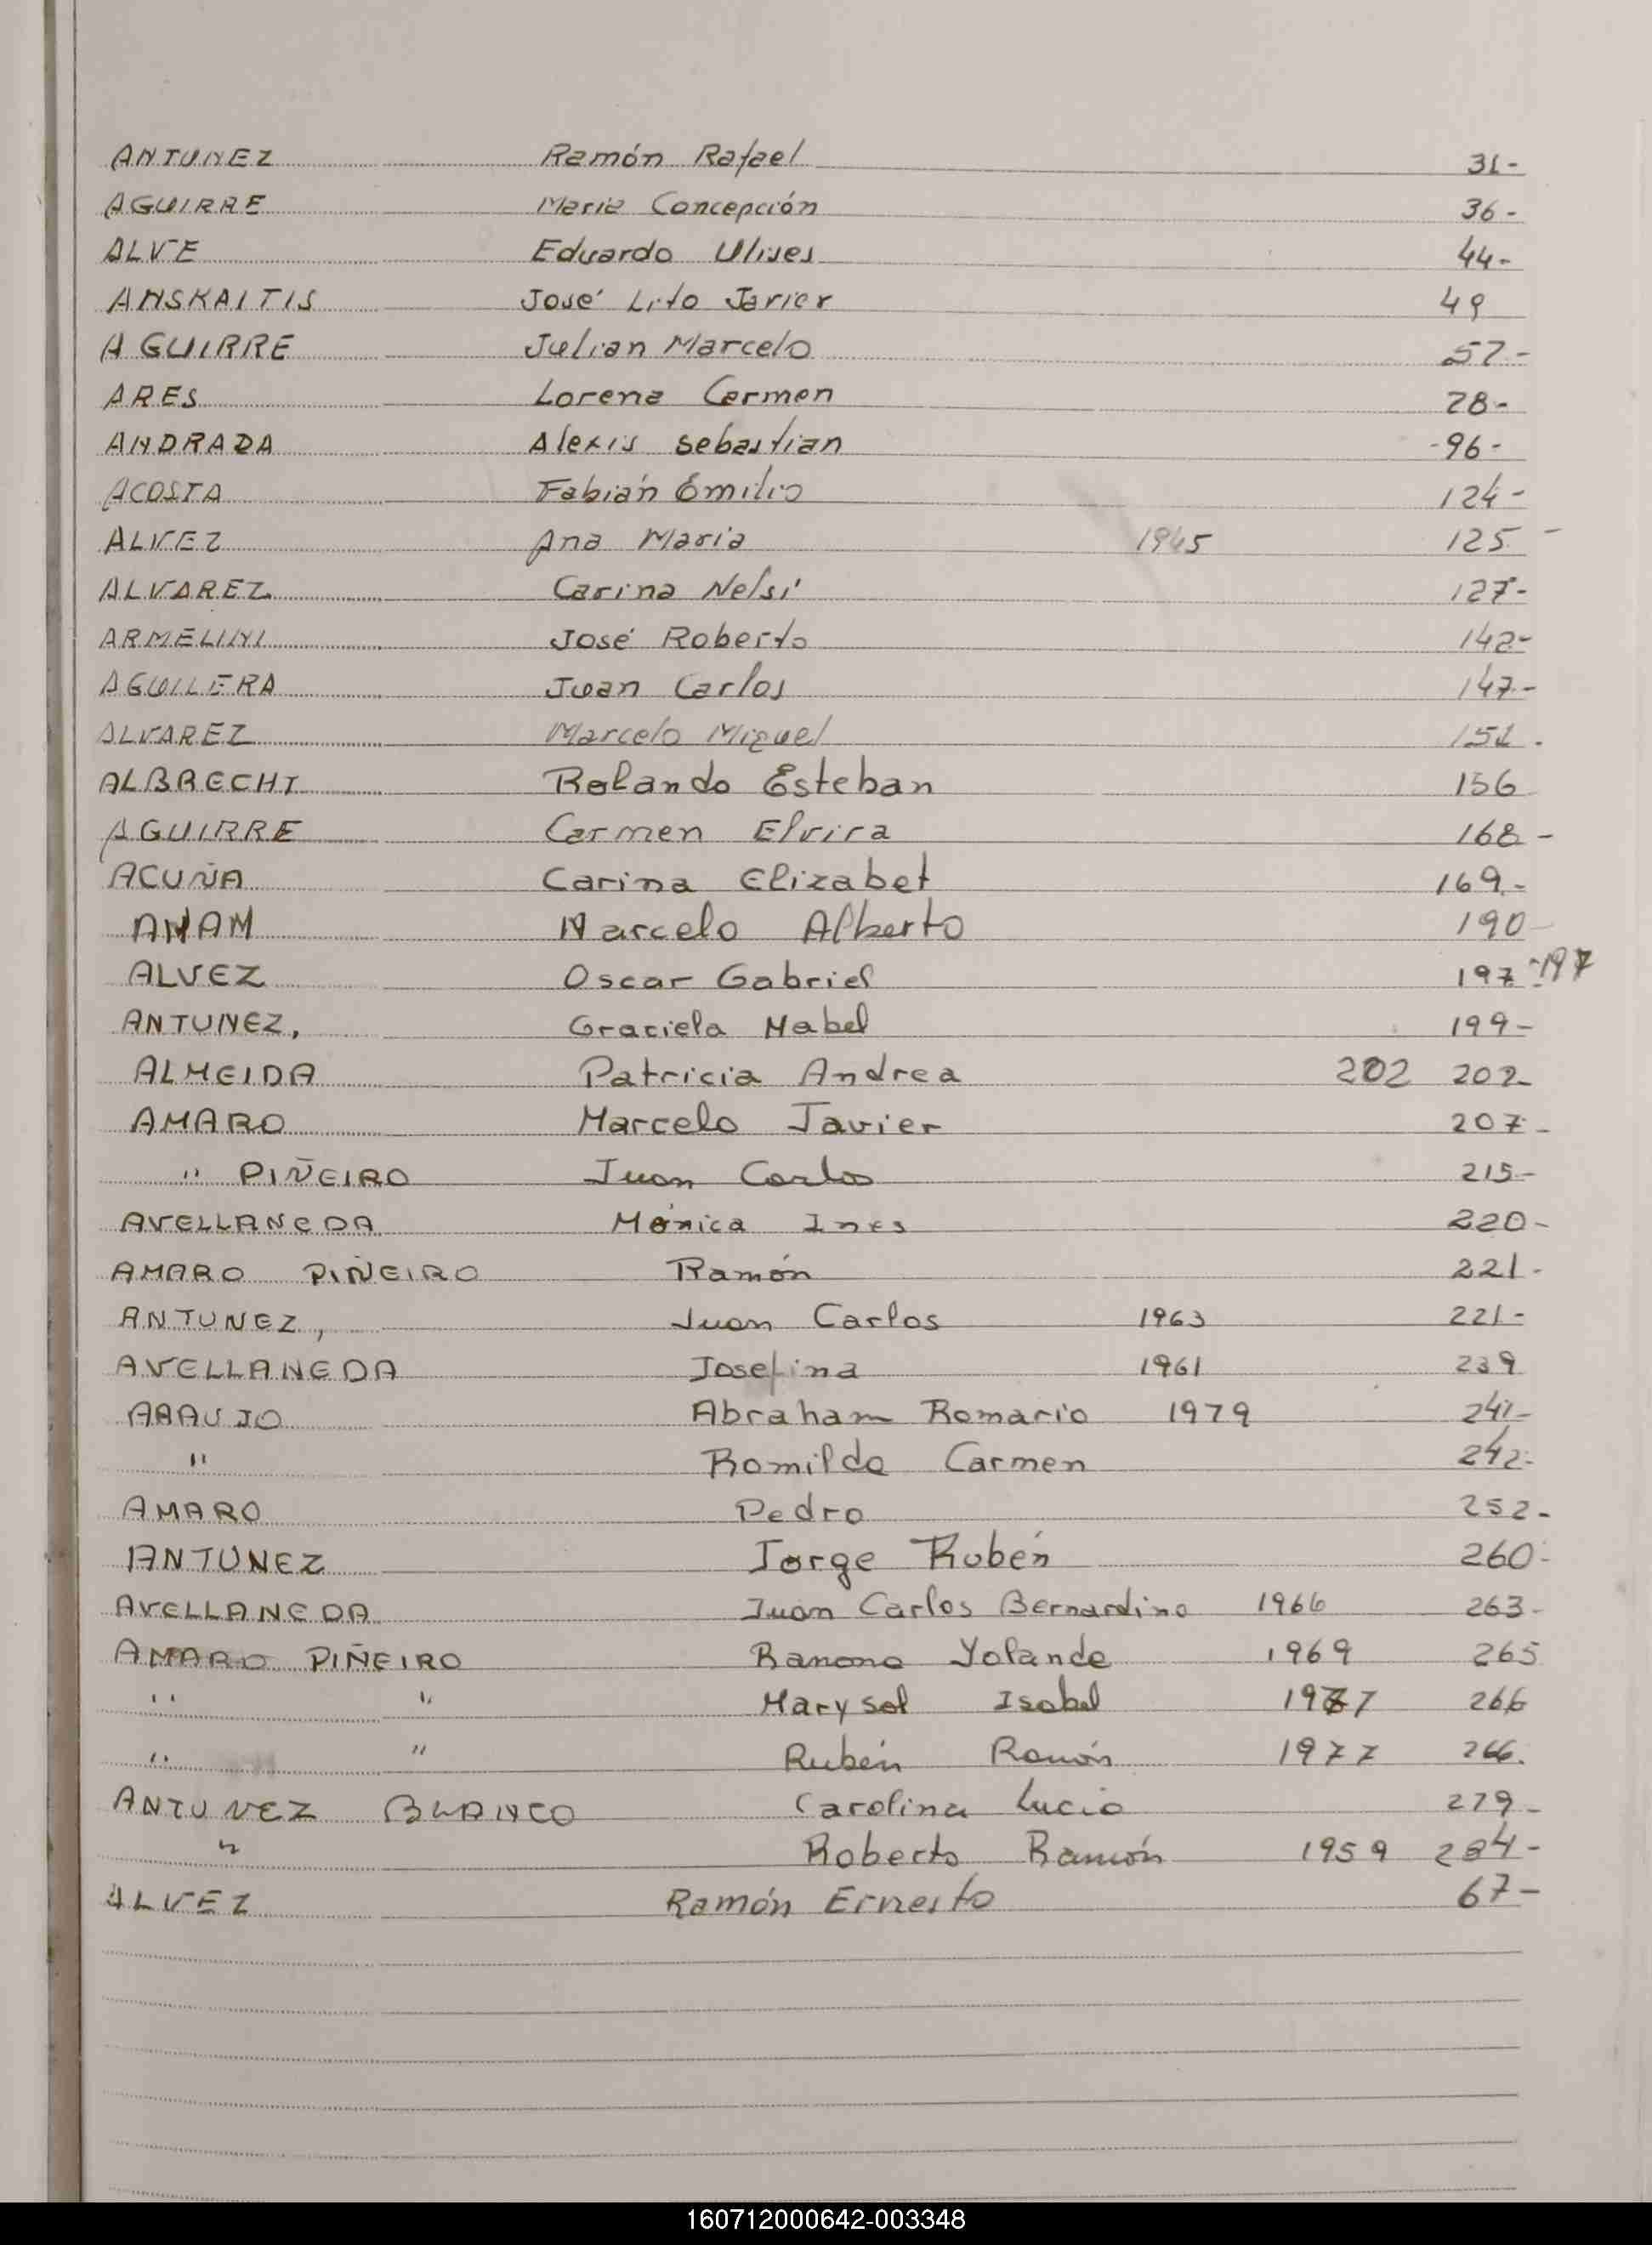 ANTUNEZ Ramón Rafael 31-
AGUIRRE Maria Concepción 36-
ALVE Eduardo Ulises 44-
ANSKAITIS José Lito Javier 49
AGUIRRE Julian Marcelo 57-
ARES Lorena Carmen 28-
ANDRADA Alexis Sebastian -96-
ACOSTA Fabián Emilio 124-
ALVEZ Ana Maria 1945 125-
ALVAREZ Carina Nelsi 127-
ARMELINI José Roberto 142-
AGUILERA Juan Carlos 147-
ALVAREZ Marcelo Miguel 151.
ALBRECHT Rolando Esteban 156
AGUIRRE Carmen Elvira 168-
ACUÑA Carina Elizabet 169.-
ANAM Marcelo Alberto 190-
ALVEZ Oscar Gabriel 197-197
ANTUNEZ, Graciela Mabel 199-
ALMEIDA Patricia Andrea 202 202-
AMARO Marcelo Javier 207-
" PIÑEIRO Juan Carlos 215-
AVELLANEDA Mónica Ines 220-
AMARO PIÑEIRO Ramón 221-
ANTUNEZ, Juan Carlos 1963 221-
AVELLANEDA Josefina 1961 239
ARAUJO Abraham Romario 1979 241-
" Romilda Carmen 242-
AMARO Pedro 252-
ANTUNEZ Jorge Rubén 260-
AVELLANEDA Juan Carlos Bernardino 1966 263-
AMARO PIÑEIRO Ramona Yolanda 1969 265
" " Marysol Isabel 1977 266
" " Rubén Ramón 1977 266.
ANTUNEZ BLANCO Carolina Lucia 279-
" Roberto Ramón 1959 284-
ALVEZ Ramón Ernesto 67-
160712000642-003348